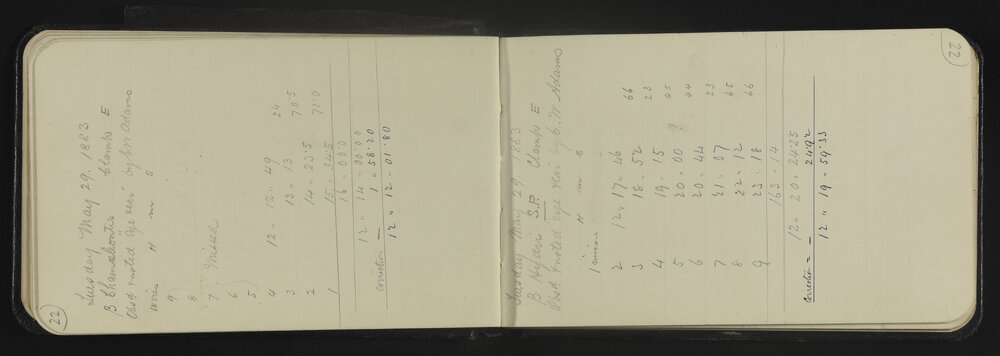 22
Tuesday May 29. 1883
β Chamaeleontis Clamp E
Obsd & noted Eye & ear by C.W. Adams
Wires H m s
9
8
7 missed
6
5
4 12 " 12 " 49 24
3 13 " 13 70.5
2 14 " 23.5 71.0
1 15 . 34.5
16 " 00.0
12 " 14 " 00.00
Correction = 1 " 58.20
12 " 12 " 01.80
22
Tuesday May 29 1883
β Hydri S.P. Clamp E
Obsd & noted eye & ear by C.W. Adams
H m s
1
2 12 " 17 " 46 66
3 18 " 52 23
4 19 " 15 45
5 20 " 00 ?
6 20 " 44 44
7 21 " 07 23
8 22 " 12 65
9 23 " 18 66
163 " 14
12 " 20 " 24.25
Correction = 24.92
12 " 19 " 59.33